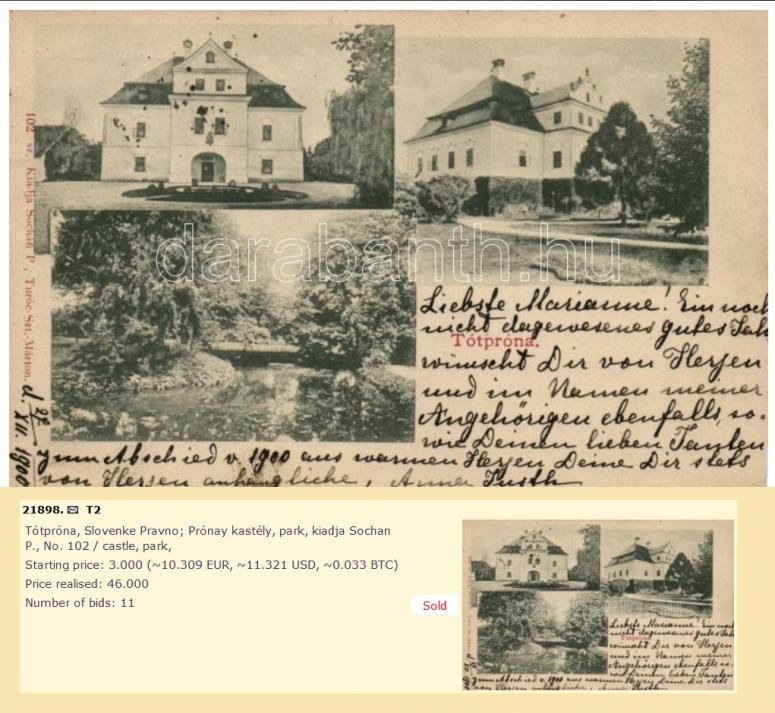 102 sz. Kiadja Sochań P., Turóc-Szt.-Márton.
darabanth.hu
Liebste Marianne! Ein noch
nicht dagewesenes gutes Jah
Tótpróna.
wünscht Dir von Herzen
und im Namen meiner
Angehörigen ebenfalls, so-
wie Deinen lieben Tanten
zum Abschied v. 1900 aus warmen Herzen Deine Dir stets
von Herzen anhängliche, Anna Justh
XII. 1900
21898. T2
Tótpróna, Slovenke Pravno; Prónay kastély, park, kiadja Sochan
P., No. 102 / castle, park,
Starting price: 3.000 (~10.309 EUR, ~11.321 USD, ~0.033 BTC)
Price realised: 46.000
Number of bids: 11
Sold